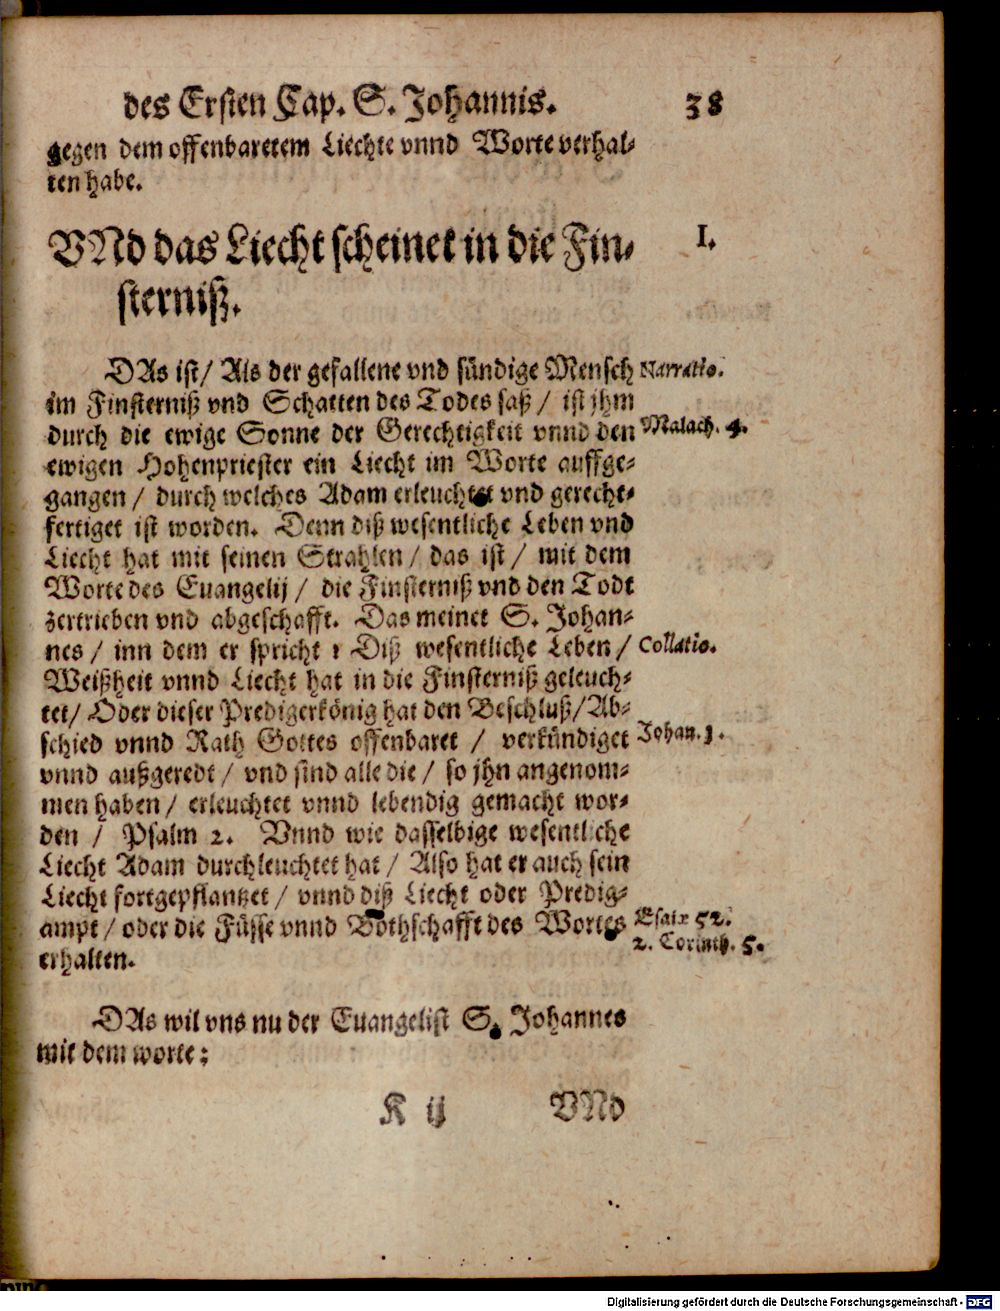 des Ersten Cap. S. Johannis. 38
gegen dem offenbaretem Liechte vnnd Worte verhal-
ten habe.
VNd das Liecht scheinet in die Fin- I.
sterniß.
DAs ist/ Als der gefallene vnd sündige Mensch Narratio.
im Finsterniß vnd Schatten des Todes saß / ist jhm
durch die ewige Sonne der Gerechtigkeit vnnd den Malach. 4.
ewigen Hohenpriester ein Liecht im Worte auffge-
gangen / durch welches Adam erleuchtet vnd gerecht-
fertiget ist worden. Denn diß wesentliche Leben vnd
Liecht hat mit seinen Strahlen / das ist / mit dem
Worte des Euangelij / die Finsterniß vnd den Todt
zertrieben vnd abgeschafft. Das meinet S. Johan-
nes / inn dem er spricht : Diß wesentliche Leben / Collatio.
Weißheit vnnd Liecht hat in die Finsterniß geleuch-
tet/ Oder dieser Predigerkönig hat den Beschluß/ Ab-
schied vnnd Rath Gottes offenbaret / verkündiget Johan. 1.
vnnd außgeredt / vnd sind alle die / so jhn angenom-
men haben / erleuchtet vnnd lebendig gemacht wor-
den / Psalm 2. Vnnd wie dasselbige wesentliche
Liecht Adam durchleuchtet hat / Also hat er auch sein
Liecht fortgepflantzet / vnnd diß Liecht oder Predig-
ampt / oder die Füsse vnnd Bothschafft des Wortes Esaiæ 52.
2. Corinth. 5.
erhalten.
DAs wil vns nu der Euangelist S. Johannes
mit dem worte:
K ij VNd
Digitalisierung gefördert durch die Deutsche Forschungsgemeinschaft - DFG